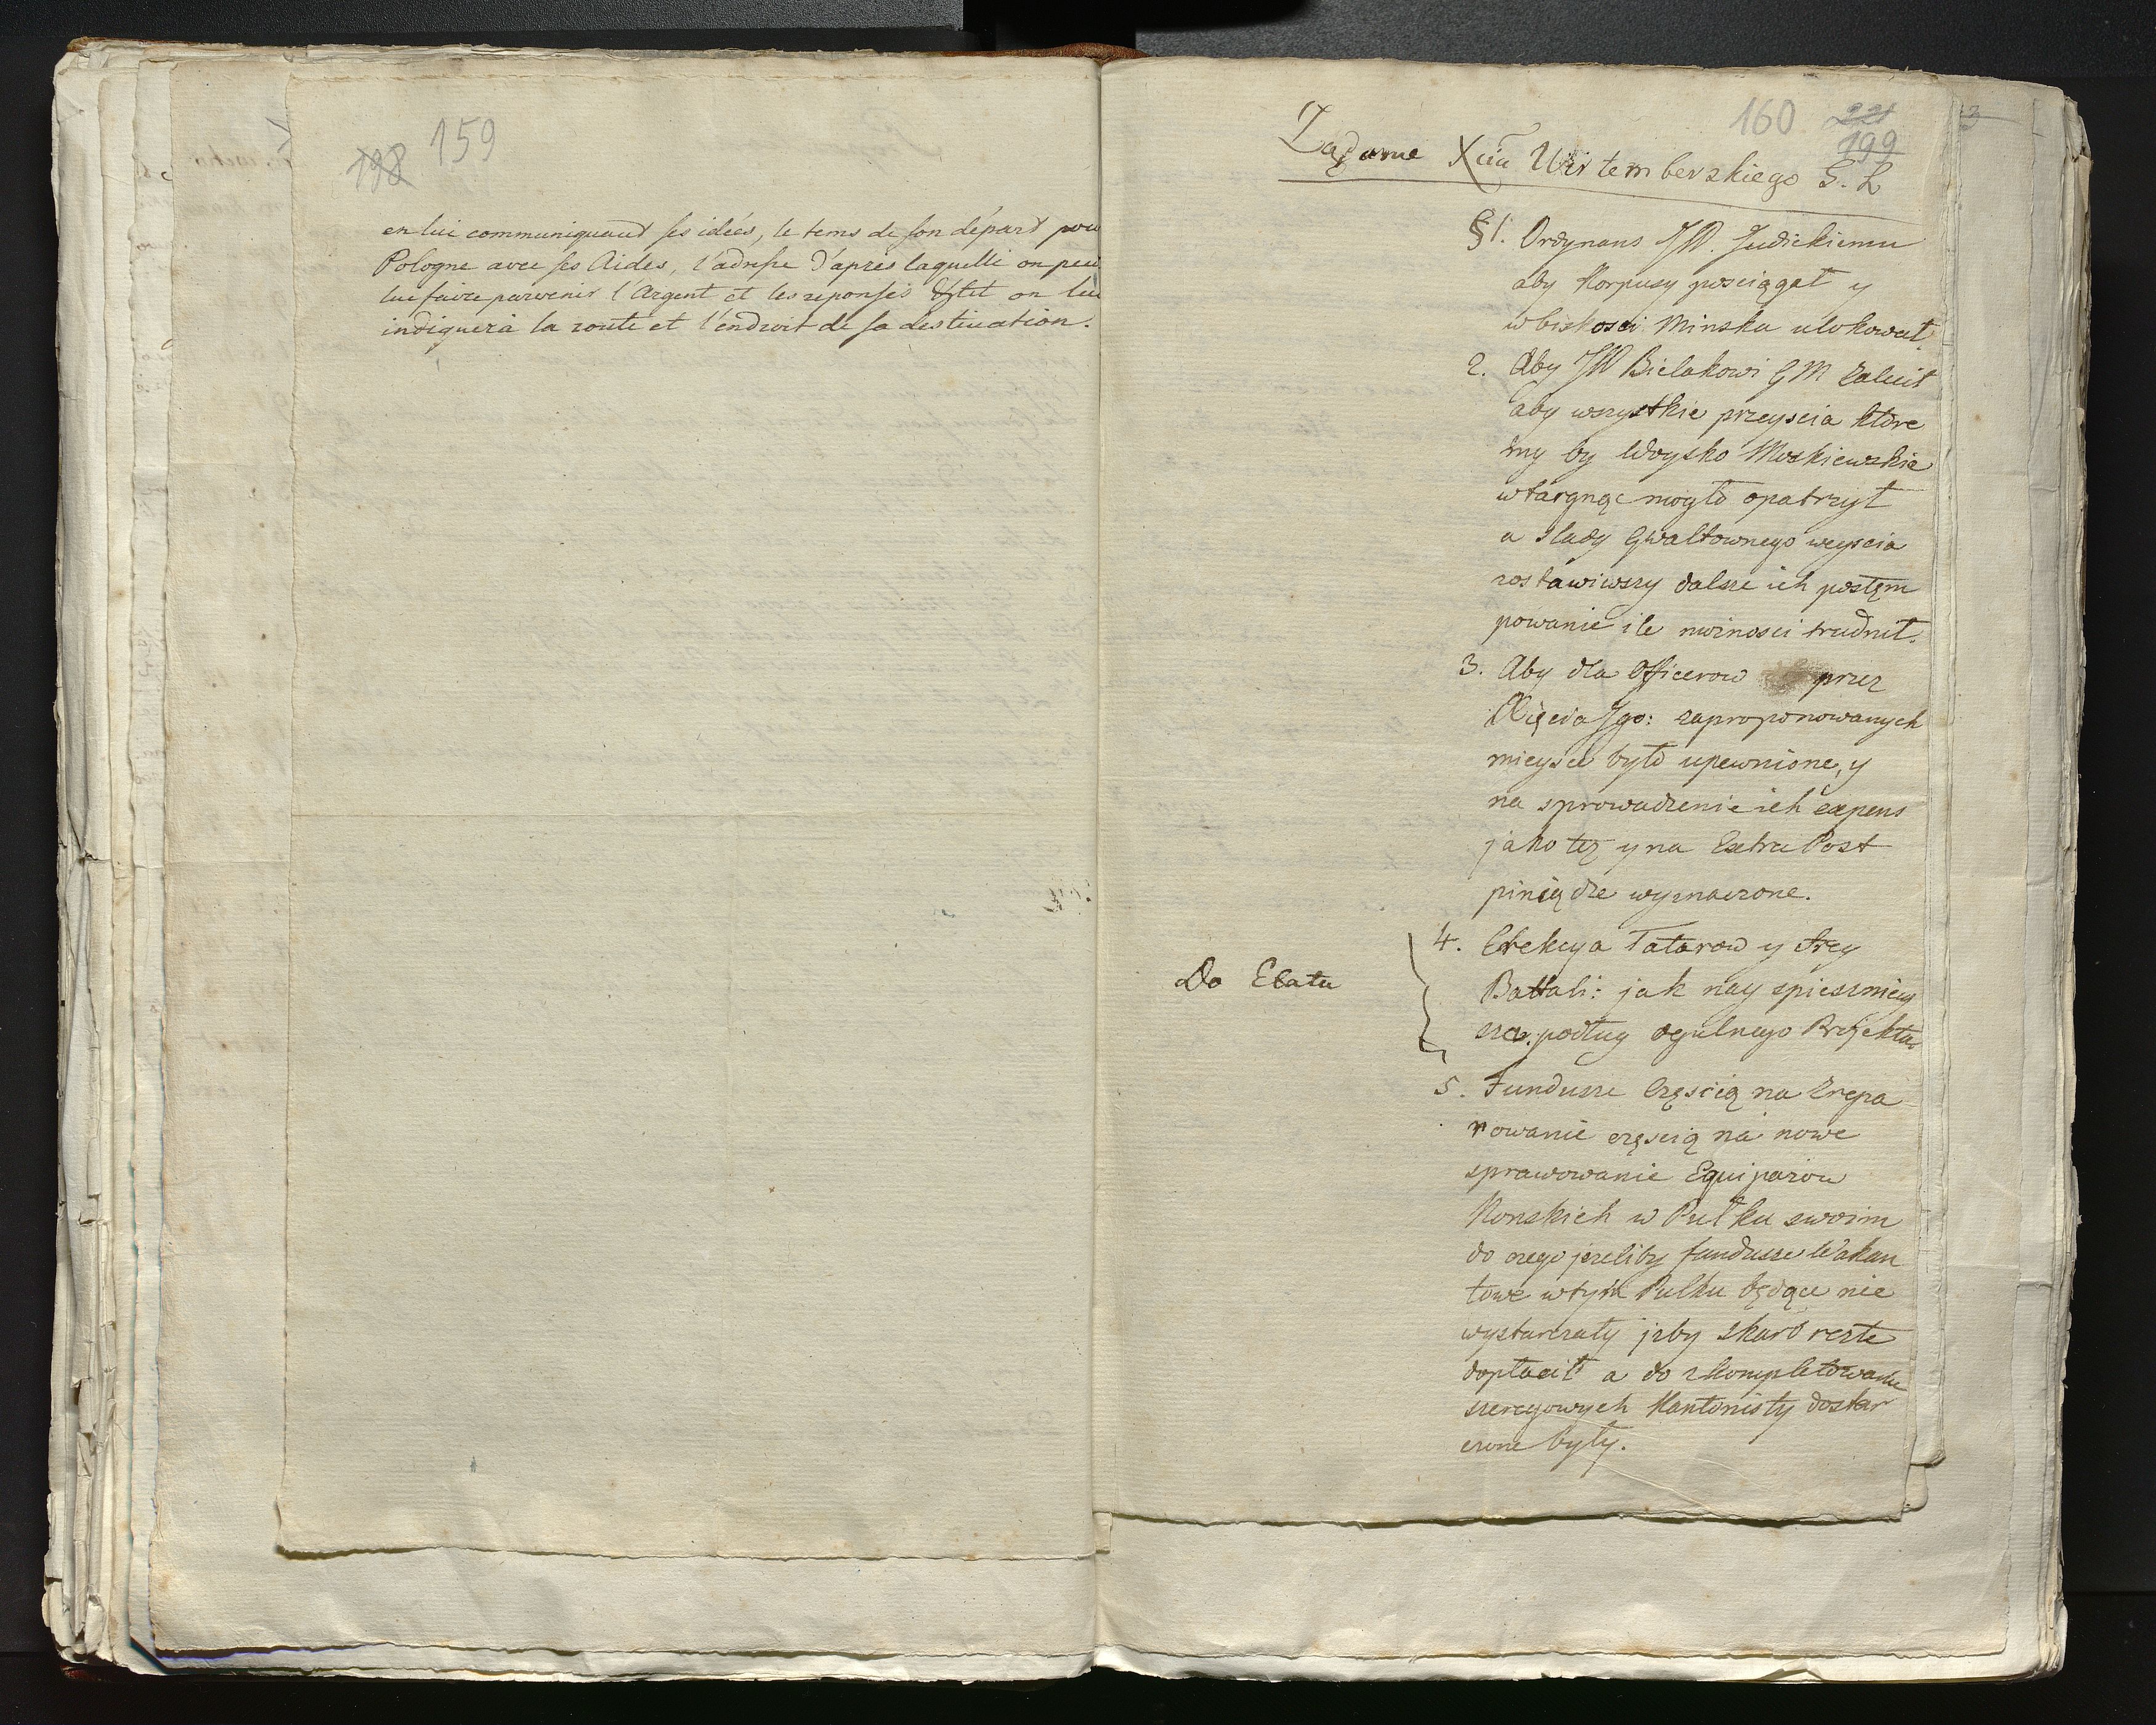 198 159
en lui communiquand ses idées, le tems de son départ pou
Pologne avec ses Aides, l'adresse d'après laquelle on peu
lui faire parvenir l'Argent et les reponses et on lui
indiquera la route et l'endroit de sa destination.
160 221
199
Ządanie Xcia Wirtemberskiego G. L
§1. Ordynans JW. Judickiemu
aby Korpusy posciągał y
w bliskosci Minska ulokował.
2. Aby JW Bielakowi GM zalicił
aby wszystkie przeyscia ktore
my by Woysko Moskiewskie
wtargnąc mogło opatrzył
a slady Gwałtownego weyscia
zostawiwszy dalsze ich postęm
powanie ile moznosci trudnił.
3. Aby dla Officerow przez
Xięcia Jgo: zaproponowanych
mieysce było upewnione, y
na sprowadzenie ich expens
jako tez y na Extra Post
piniądze wyznaczone.
Do Etatu
4. Erekcya Tatarow y strzy
Battali: jak nay spieszniey
sza. podług ogulnego Projektu
5. Fundusze Częscią na zrepa
rowanie częscią na nowe
sprawowanie Equipazow
Konskich w Pułku swoim
do czego jezeliby fundusze Wakan
towe w tym Pułku będące nie
wystarczały izby skarb reszte
dopłacił a do skompletowania
szeregowych Kantonisty dostar
czone były.